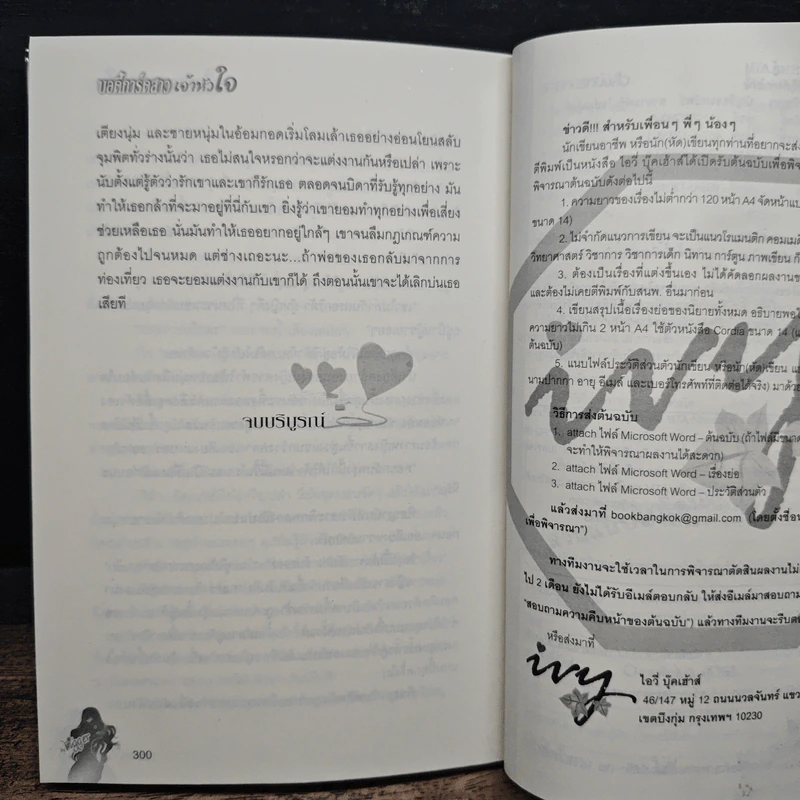 บอดี้การ์ดสาวเจ้าหัวใจ
เตียงนุ่ม และชายหนุ่มในอ้อมกอดเริ่มโลมเล้าเธออย่างอ่อนโยนสลับ
จุมพิตทั่วร่างนั้นว่า เธอไม่สนใจหรอกว่าจะแต่งงานกันหรือเปล่า เพราะ
นับตั้งแต่รู้ตัวว่ารักเขาและเขาก็รักเธอ ตลอดจนบิดาที่รับรู้ทุกอย่าง มัน
ทำให้เธอกล้าที่จะมาอยู่ที่นี่กับเขา ยิ่งรู้ว่าเขายอมทำทุกอย่างเพื่อเสี่ยง
ช่วยเหลือเธอ นั่นมันทำให้เธออยากอยู่ใกล้ๆ เขาจนลืมกฎเกณฑ์ความ
ถูกต้องไปจนหมด แต่ช่างเถอะนะ...ถ้าพ่อของเธอกลับมาจากการ
ท่องเที่ยว เธอจะยอมแต่งงานกับเขาก็ได้ ถึงตอนนั้นเขาจะได้เลิกบ่นเธอ
เสียที
จบบริบูรณ์
300
ข่าวดี!!! สำหรับเพื่อนๆ พี่ๆ น้องๆ
นักเขียนอาชีพ หรือนัก(หัด)เขียนทุกท่านที่อยากจะส่ง
ตีพิมพ์เป็นหนังสือ ไอวี่ บุ๊คเฮ้าส์ได้เปิดรับต้นฉบับเพื่อพิจ
พิจารณาต้นฉบับดังต่อไปนี้
1. ความยาวของเรื่องไม่ต่ำกว่า 120 หน้า A4 จัดหน้าแบ
ขนาด 14)
2. ไม่จำกัดแนวการเขียน จะเป็นแนวโรแมนติก คอมเมดี
วิทยาศาสตร์ วิชาการ วิชาการเด็ก นิทาน การ์ตูน ภาพเขียน ก็
3. ต้องเป็นเรื่องที่แต่งขึ้นเอง ไม่ได้คัดลอกผลงานข
และต้องไม่เคยตีพิมพ์กับสนพ. อื่นมาก่อน
4. เขียนสรุปเนื้อเรื่องย่อของนิยายทั้งหมด อธิบายพอ
ความยาวไม่เกิน 2 หน้า A4 ใช้ตัวหนังสือ Cordia ขนาด 14 (แ
ต้นฉบับ)
5. แนบไฟล์ประวัติส่วนตัวนักเขียน หรือนัก(หัด)เขียน แ
นามปากกา อายุ อีเมล์ และเบอร์โทรศัพท์ที่ติดต่อได้จริง) มาด้วย
วิธีการส่งต้นฉบับ
1. attach ไฟล์ Microsoft Word – ต้นฉบับ (ถ้าไฟล์มีขนาด
จะทำให้พิจารณาผลงานได้สะดวก)
2. attach ไฟล์ Microsoft Word – เรื่องย่อ
3. attach ไฟล์ Microsoft Word – ประวัติส่วนตัว
แล้วส่งมาที่ bookbangkok@gmail.com (โดยตั้งชื่อ
เพื่อพิจารณา")
ทางทีมงานจะใช้เวลาในการพิจารณาตัดสินผลงานไม่
ไป 2 เดือน ยังไม่ได้รับอีเมล์ตอบกลับ ให้ส่งอีเมล์มาสอบถาม
"สอบถามความคืบหน้าของต้นฉบับ") แล้วทางทีมงานจะรีบต
หรือส่งมาที่
ivy
ไอวี่ บุ๊คเฮ้าส์
46/147 หมู่ 12 ถนนนวลจันทร์ แขว
เขตบึงกุ่ม กรุงเทพฯ 10230